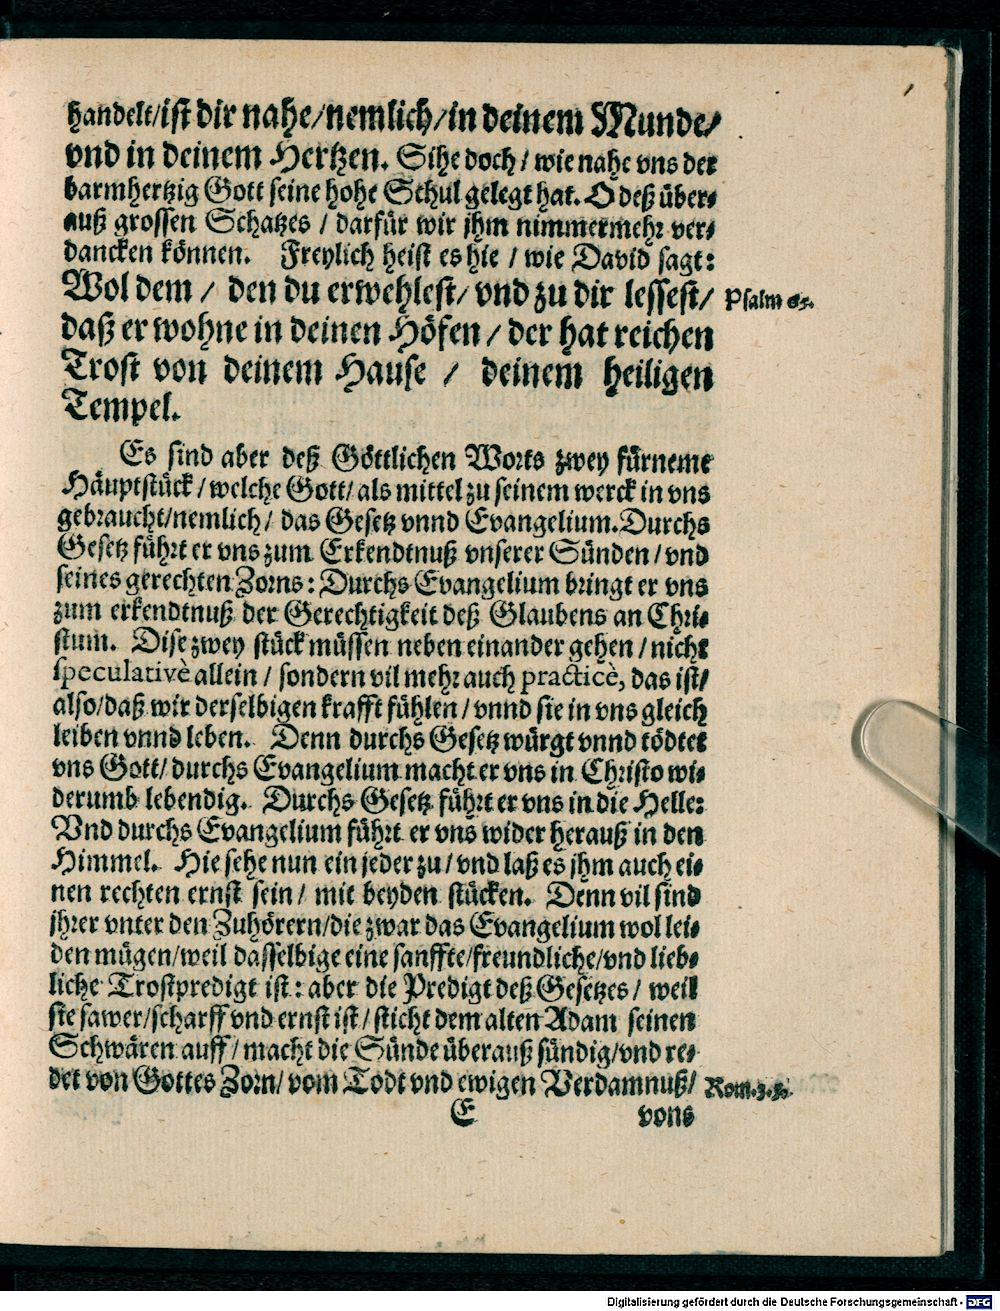 handelt/ist dir nahe/nemlich/in deinem Munde/
vnd in deinem Hertzen. Sihe doch/ wie nahe vns der
barmhertzig Gott seine hohe Schul gelegt hat. O deß über-
auß grossen Schatzes / darfür wir jhm nimmermehr ver-
dancken können. Freylich heist es hie / wie David sagt:
Wol dem / den du erwehlest/ vnd zu dir lessest/
Psalm 65.
daß er wohne in deinen Höfen / der hat reichen
Trost von deinem Hause / deinem heiligen
Tempel.
Es sind aber deß Göttlichen Worts zwey fürneme
Häuptstück / welche Gott/ als mittel zu seinem werck in vns
gebraucht/nemlich/ das Gesetz vnnd Evangelium. Durchs
Gesetz führt er vns zum Erkendtnuß vnserer Sünden / vnd
seines gerechten Zorns: Durchs Evangelium bringt er vns
zum erkendtnuß der Gerechtigkeit deß Glaubens an Chri-
stum. Dise zwey stück müssen neben einander gehen / nicht
speculativè allein / sondern vil mehr auch practicè, das ist/
also/daß wir derselbigen krafft fühlen / vnnd sie in vns gleich
leiben vnnd leben. Denn durchs Gesetz würgt vnnd tödtet
vns Gott/ durchs Evangelium macht er vns in Christo wi-
derumb lebendig. Durchs Gesetz führt er vns in die Helle:
Vnd durchs Evangelium führt er vns wider herauß in den
Himmel. Hie sehe nun ein jeder zu / vnd laß es jhm auch ei-
nen rechten ernst sein / mit beyden stücken. Denn vil sind
jhrer vnter den Zuhörern/die zwar das Evangelium wol lei-
den mügen/weil dasselbige eine sanffte/freundliche/vnd lieb-
liche Trostpredigt ist: aber die Predigt deß Gesetzes / weil
sie sawer/scharff vnd ernst ist / sticht dem alten Adam seinen
Schwären auff / macht die Sünde überauß sündig/vnd re-
det von Gottes Zorn/ vom Todt vnd ewigen Verdamnuß/
Rom. 3.
E
vons
Digitalisierung gefördert durch die Deutsche Forschungsgemeinschaft - DFG